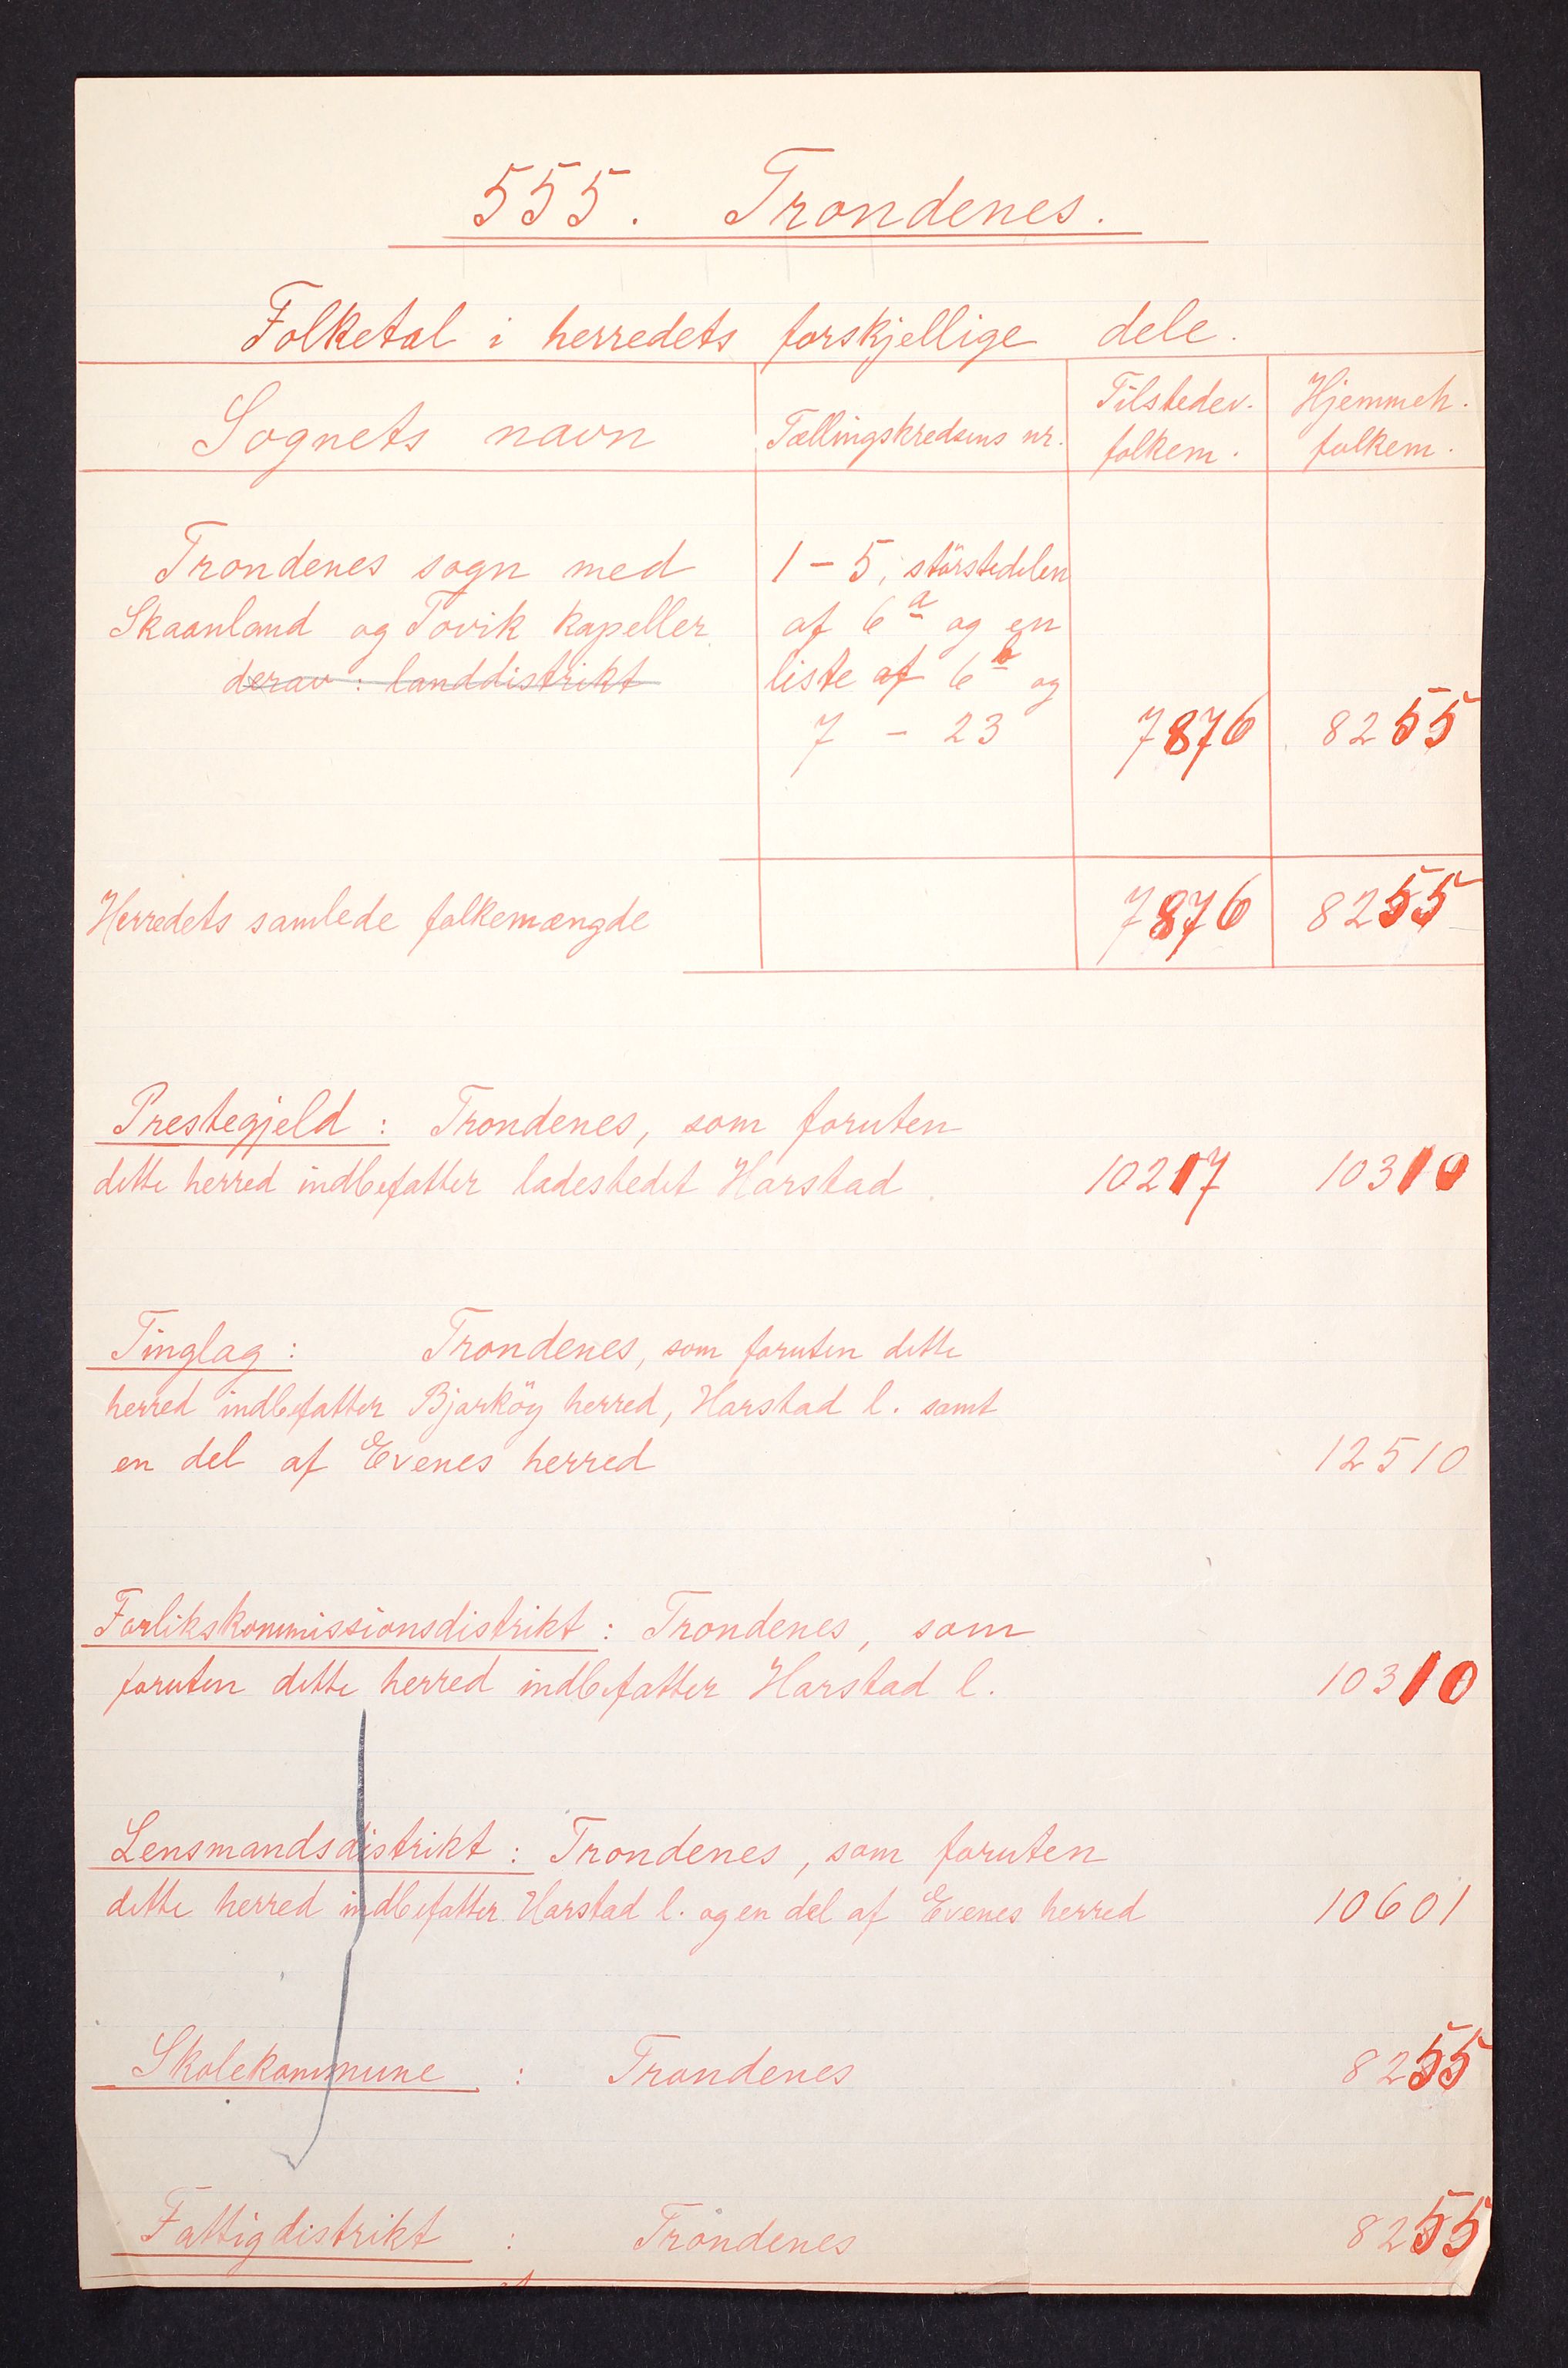 555. Trondenes.
Folketal i herredets forskjellige dele.
Sognets navn Tællingskredsens nr. Tilstedev. folkem. Hjemmeh. folkem.
Trondenes sogn med 1-5, störstedelen
Skaanland og Tovik kapeller af 6a og en
derav: landdistrikt liste af 6b og
7 - 23 7876 8255
Herredets samlede folkemængde 7876 8255
Prestegjeld: Trondenes, som foruten
dette herred indbefatter ladestedet Harstad 10217 10310
Tinglag: Trondenes, som foruten dette
herred indbefatter Bjarköy herred, Harstad l. samt
en del af Evenes herred 12510
Forlikskommissionsdistrikt: Trondenes, som
foruten dette herred indbefatter Harstad l. 10310
Lensmandsdistrikt: Trondenes, som foruten
dette herred indbefatter Harstad l. og en del af Evenes herred 10601
Skolekommune: Trondenes 8255
Fattigdistrikt: Trondenes 8255